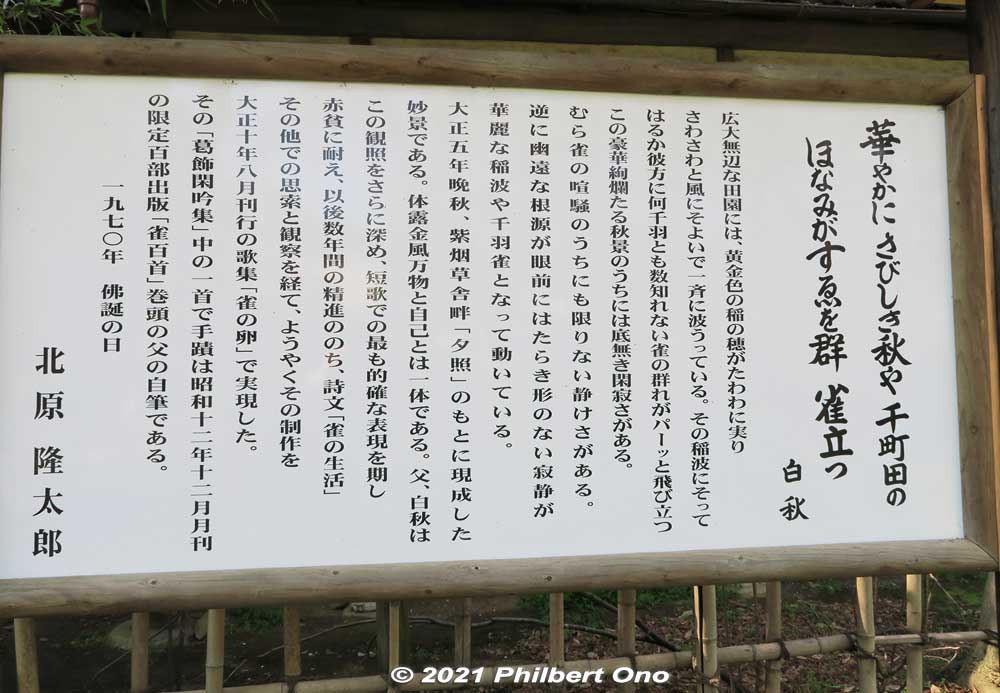 華やかにさびしき秋や千町田の
ほなみがすゑを群雀立つ
白秋
広大無辺な田園には、黄金色の稲の穂がたわわに実り
さわさわと風にそよいで一斉に波うっている。その稲波にそって
はるか彼方に何千羽とも数知れない雀の群れがパーッと飛び立つ
この豪華絢爛たる秋景のうちには底無き閑寂さがある。
むら雀の喧騒のうちにも限りない静けさがある。
逆に幽遠な根源が眼前にはたらき形のない寂静が
華麗な稲波や千羽雀となって動いている。
大正五年晩秋、紫烟草舎畔「夕照」のもとに現成した
妙景である。体露金風万物と自己とは一体である。父、白秋は
この観照をさらに深め、短歌での最も的確な表現を期し
赤貧に耐え、以後数年間の精進ののち、詩文「雀の生活」
その他での思索と観察を経て、ようやくその制作を
大正十年八月刊行の歌集「雀の卵」で実現した。
その「葛飾閑吟集」中の一首で手蹟は昭和十二年十二月月刊
の限定百部出版「雀百首」巻頭の父の自筆である。
一九七〇年 佛誕の日
北原 隆太郎
© 2021 Philbert Ono